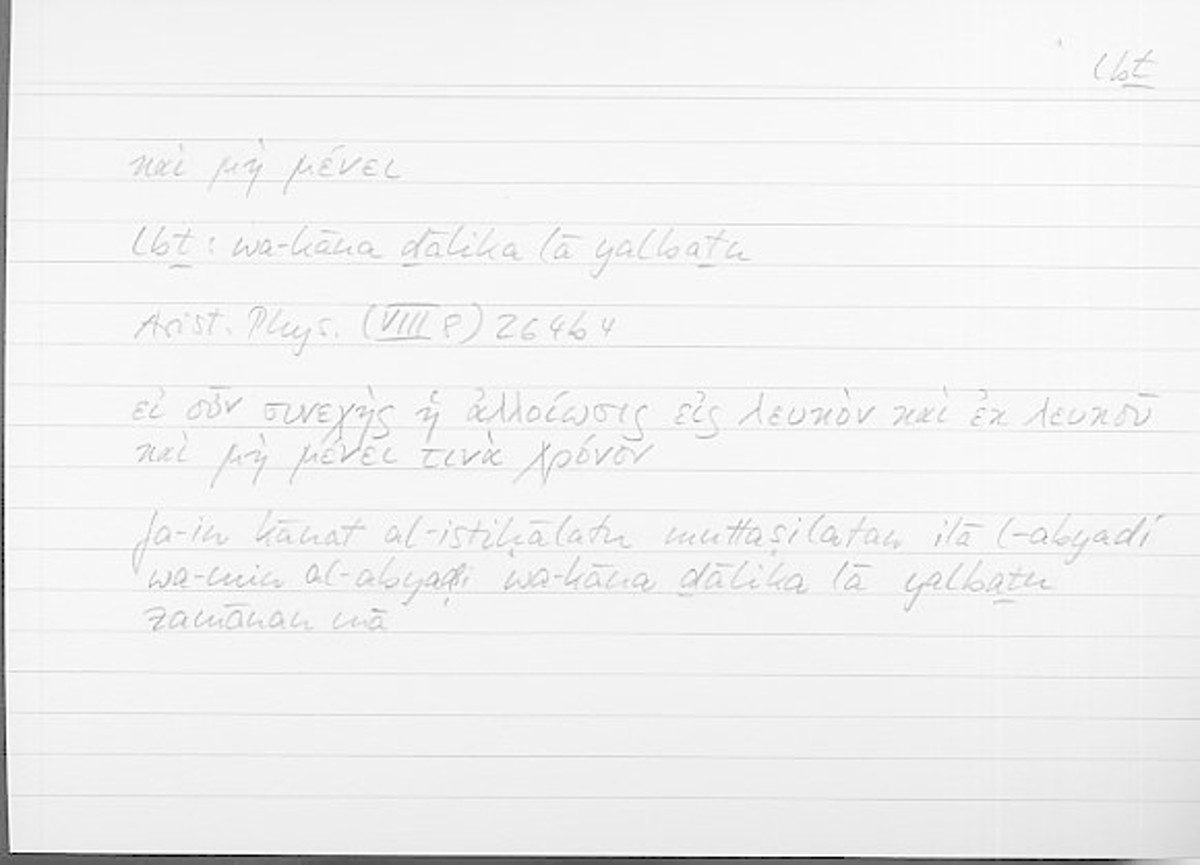 lbṯ
καὶ μὴ μένει
lbṯ: wa-kāna ḏālika lā yalbaṯu
Arist. Phys. (VIII 8) 264b4
εἰ οὖν συνεχὴς ἡ ἀλλοίωσις εἰς λευκὸν καὶ ἐκ λευκοῦ
καὶ μὴ μένει τινὰ χρόνον
fa-in kānat al-istiḥālatu muttaṣilatan ilā l-abyaḍi
wa-min al-abyaḍi wa-kāna ḏālika lā yalbaṯu
zamānan mā